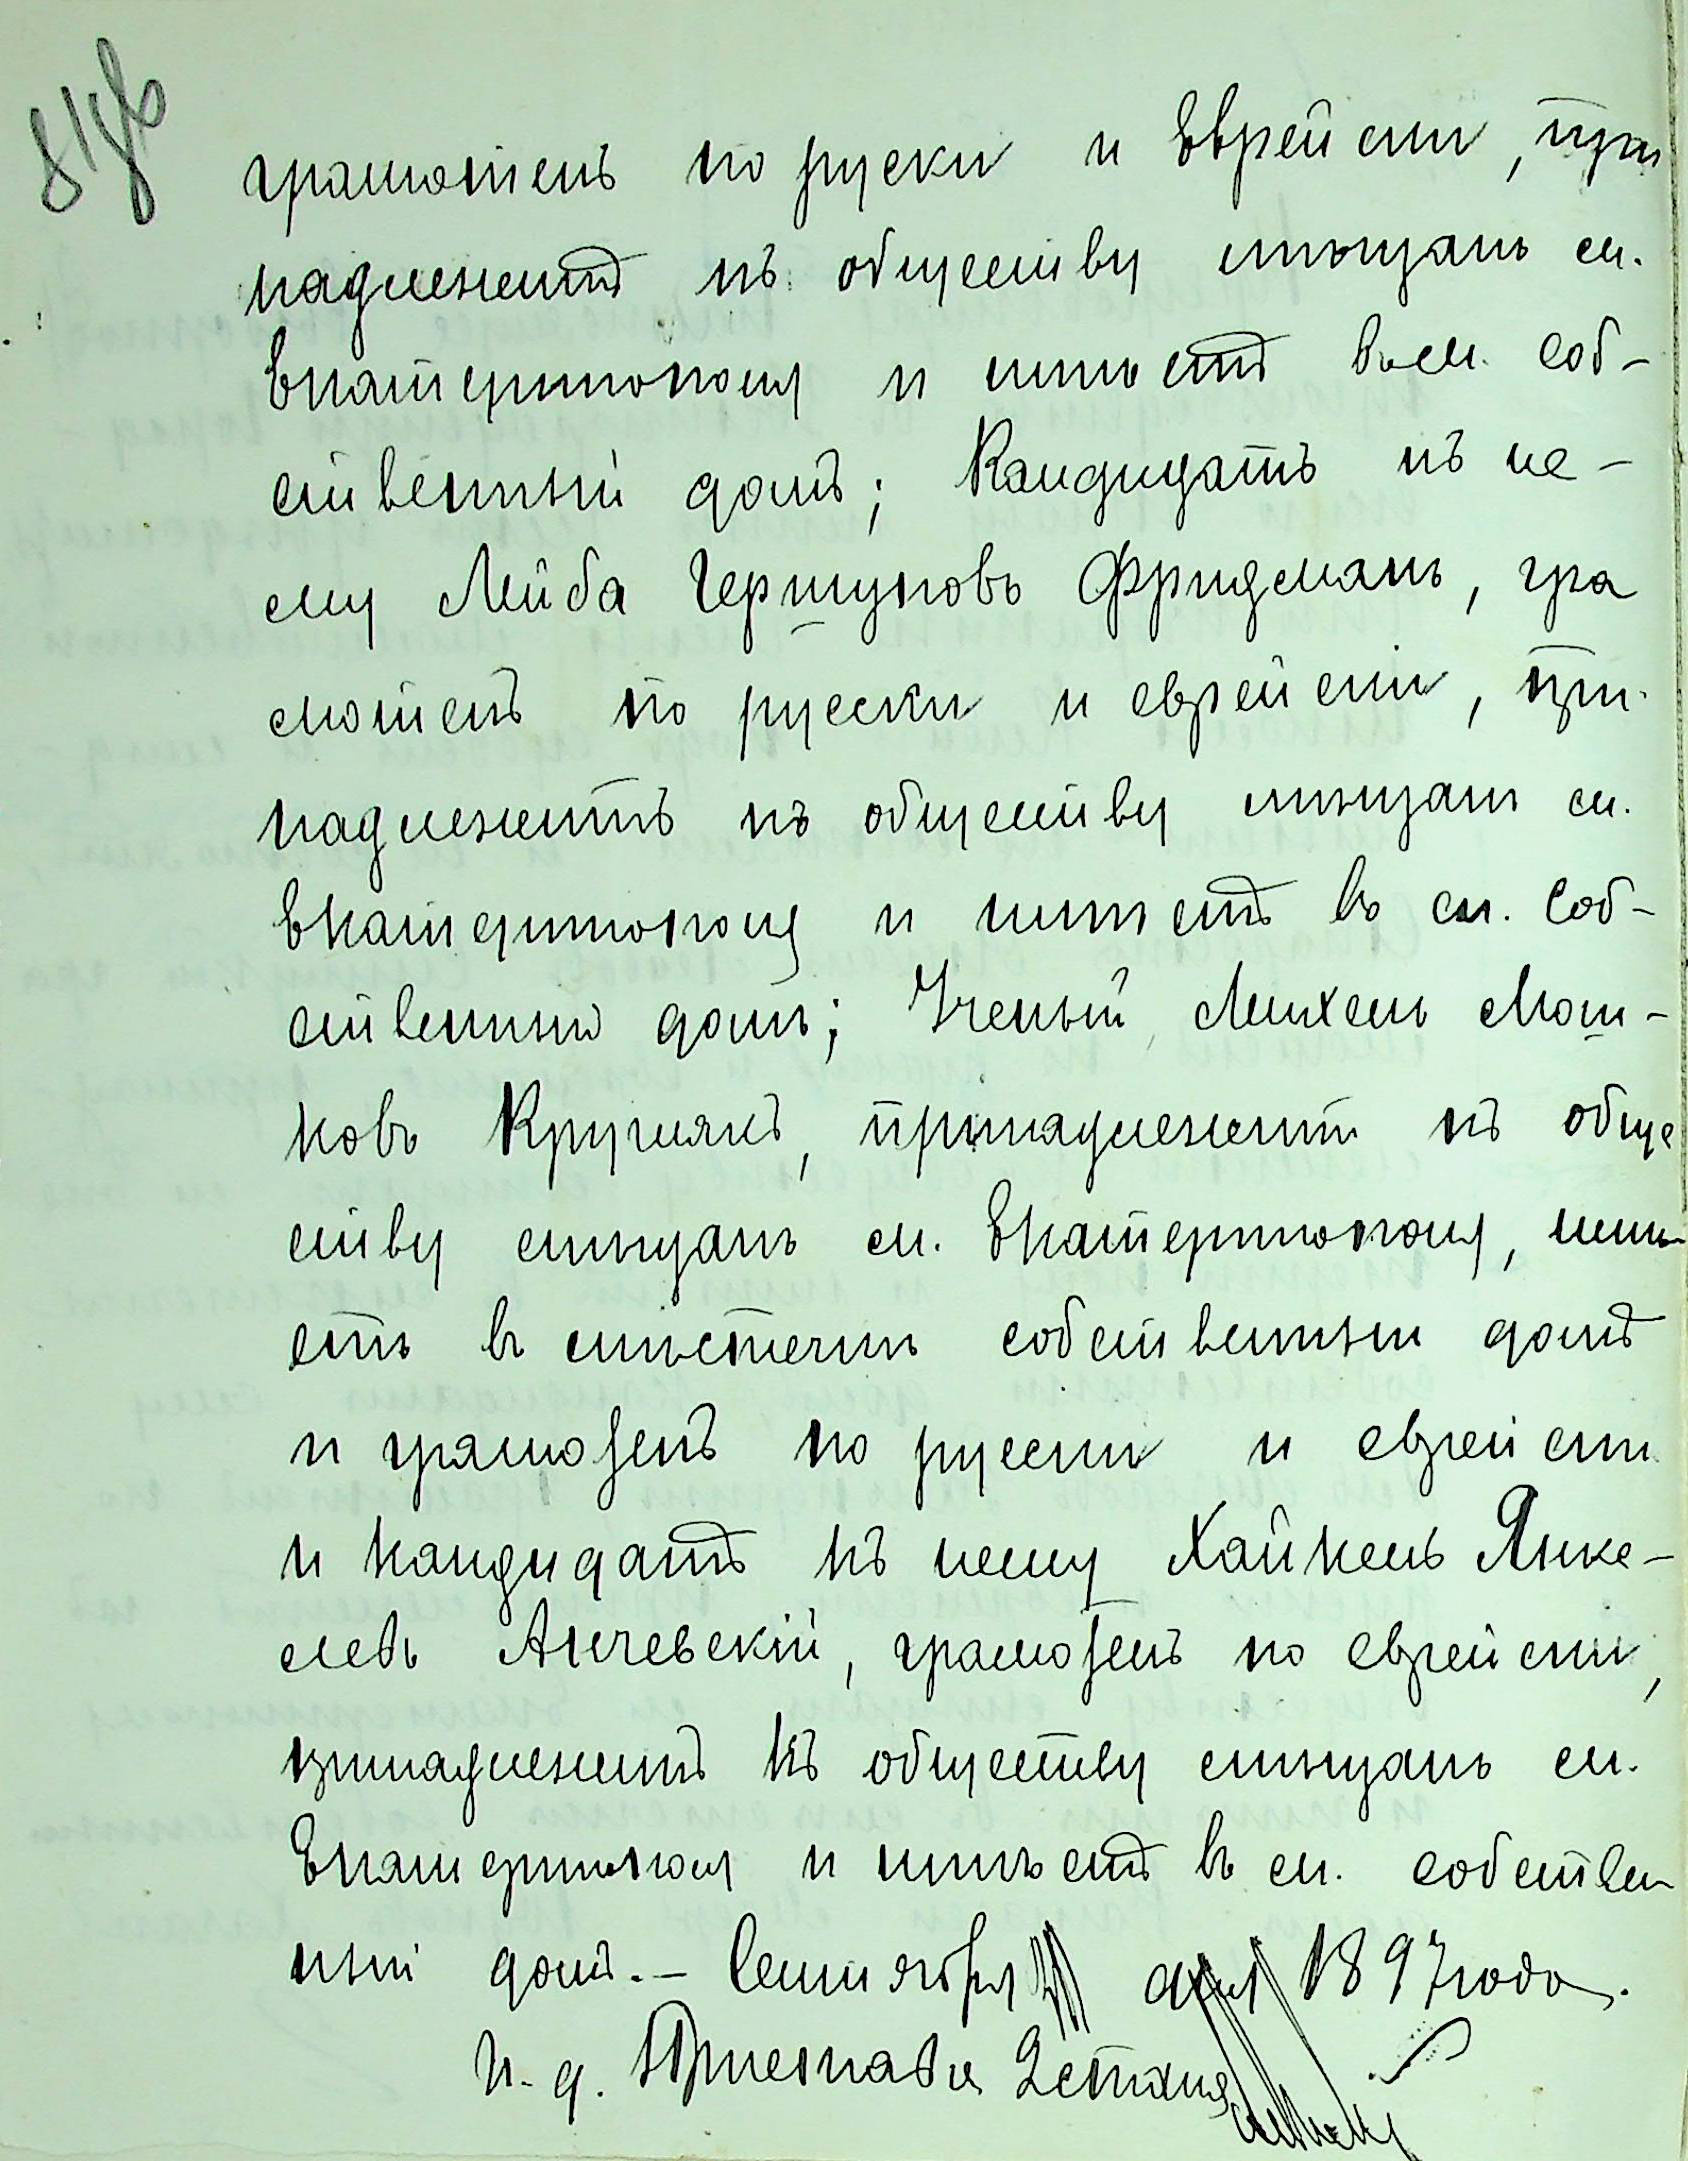 грамотенъ по руски и Еврейски, при
надлежитъ къ обществу мѣщанъ м.
Екатеринополя и имѣетъ въ м. соб-
ственный домъ; Кандидатъ къ не-
му Лейба Гершуновъ Фридманъ, гра
мотенъ по русски и еврейски, при
надлежитъ къ обществу мѣщанъ м.
Екатеринополя и имѣетъ въ м. соб-
ственный домъ; Ученый Михель Мош-
ковъ Кругликъ, принадлежитъ къ обще
ству мѣщанъ м. Екатеринополя, имѣ
етъ въ мѣстечкѣ собственный домъ
и грамотенъ по русски и еврейски
и кандидатъ къ нему Хаймель Янке-
левъ Аничевскій, грамотенъ по еврейски,
принадлежитъ къ обществу мѣщанъ м.
Екатеринополя и имѣетъ въ м. собствен
ный домъ.- Сентября дня 1897 года.
И. д. Пристава 2 стана